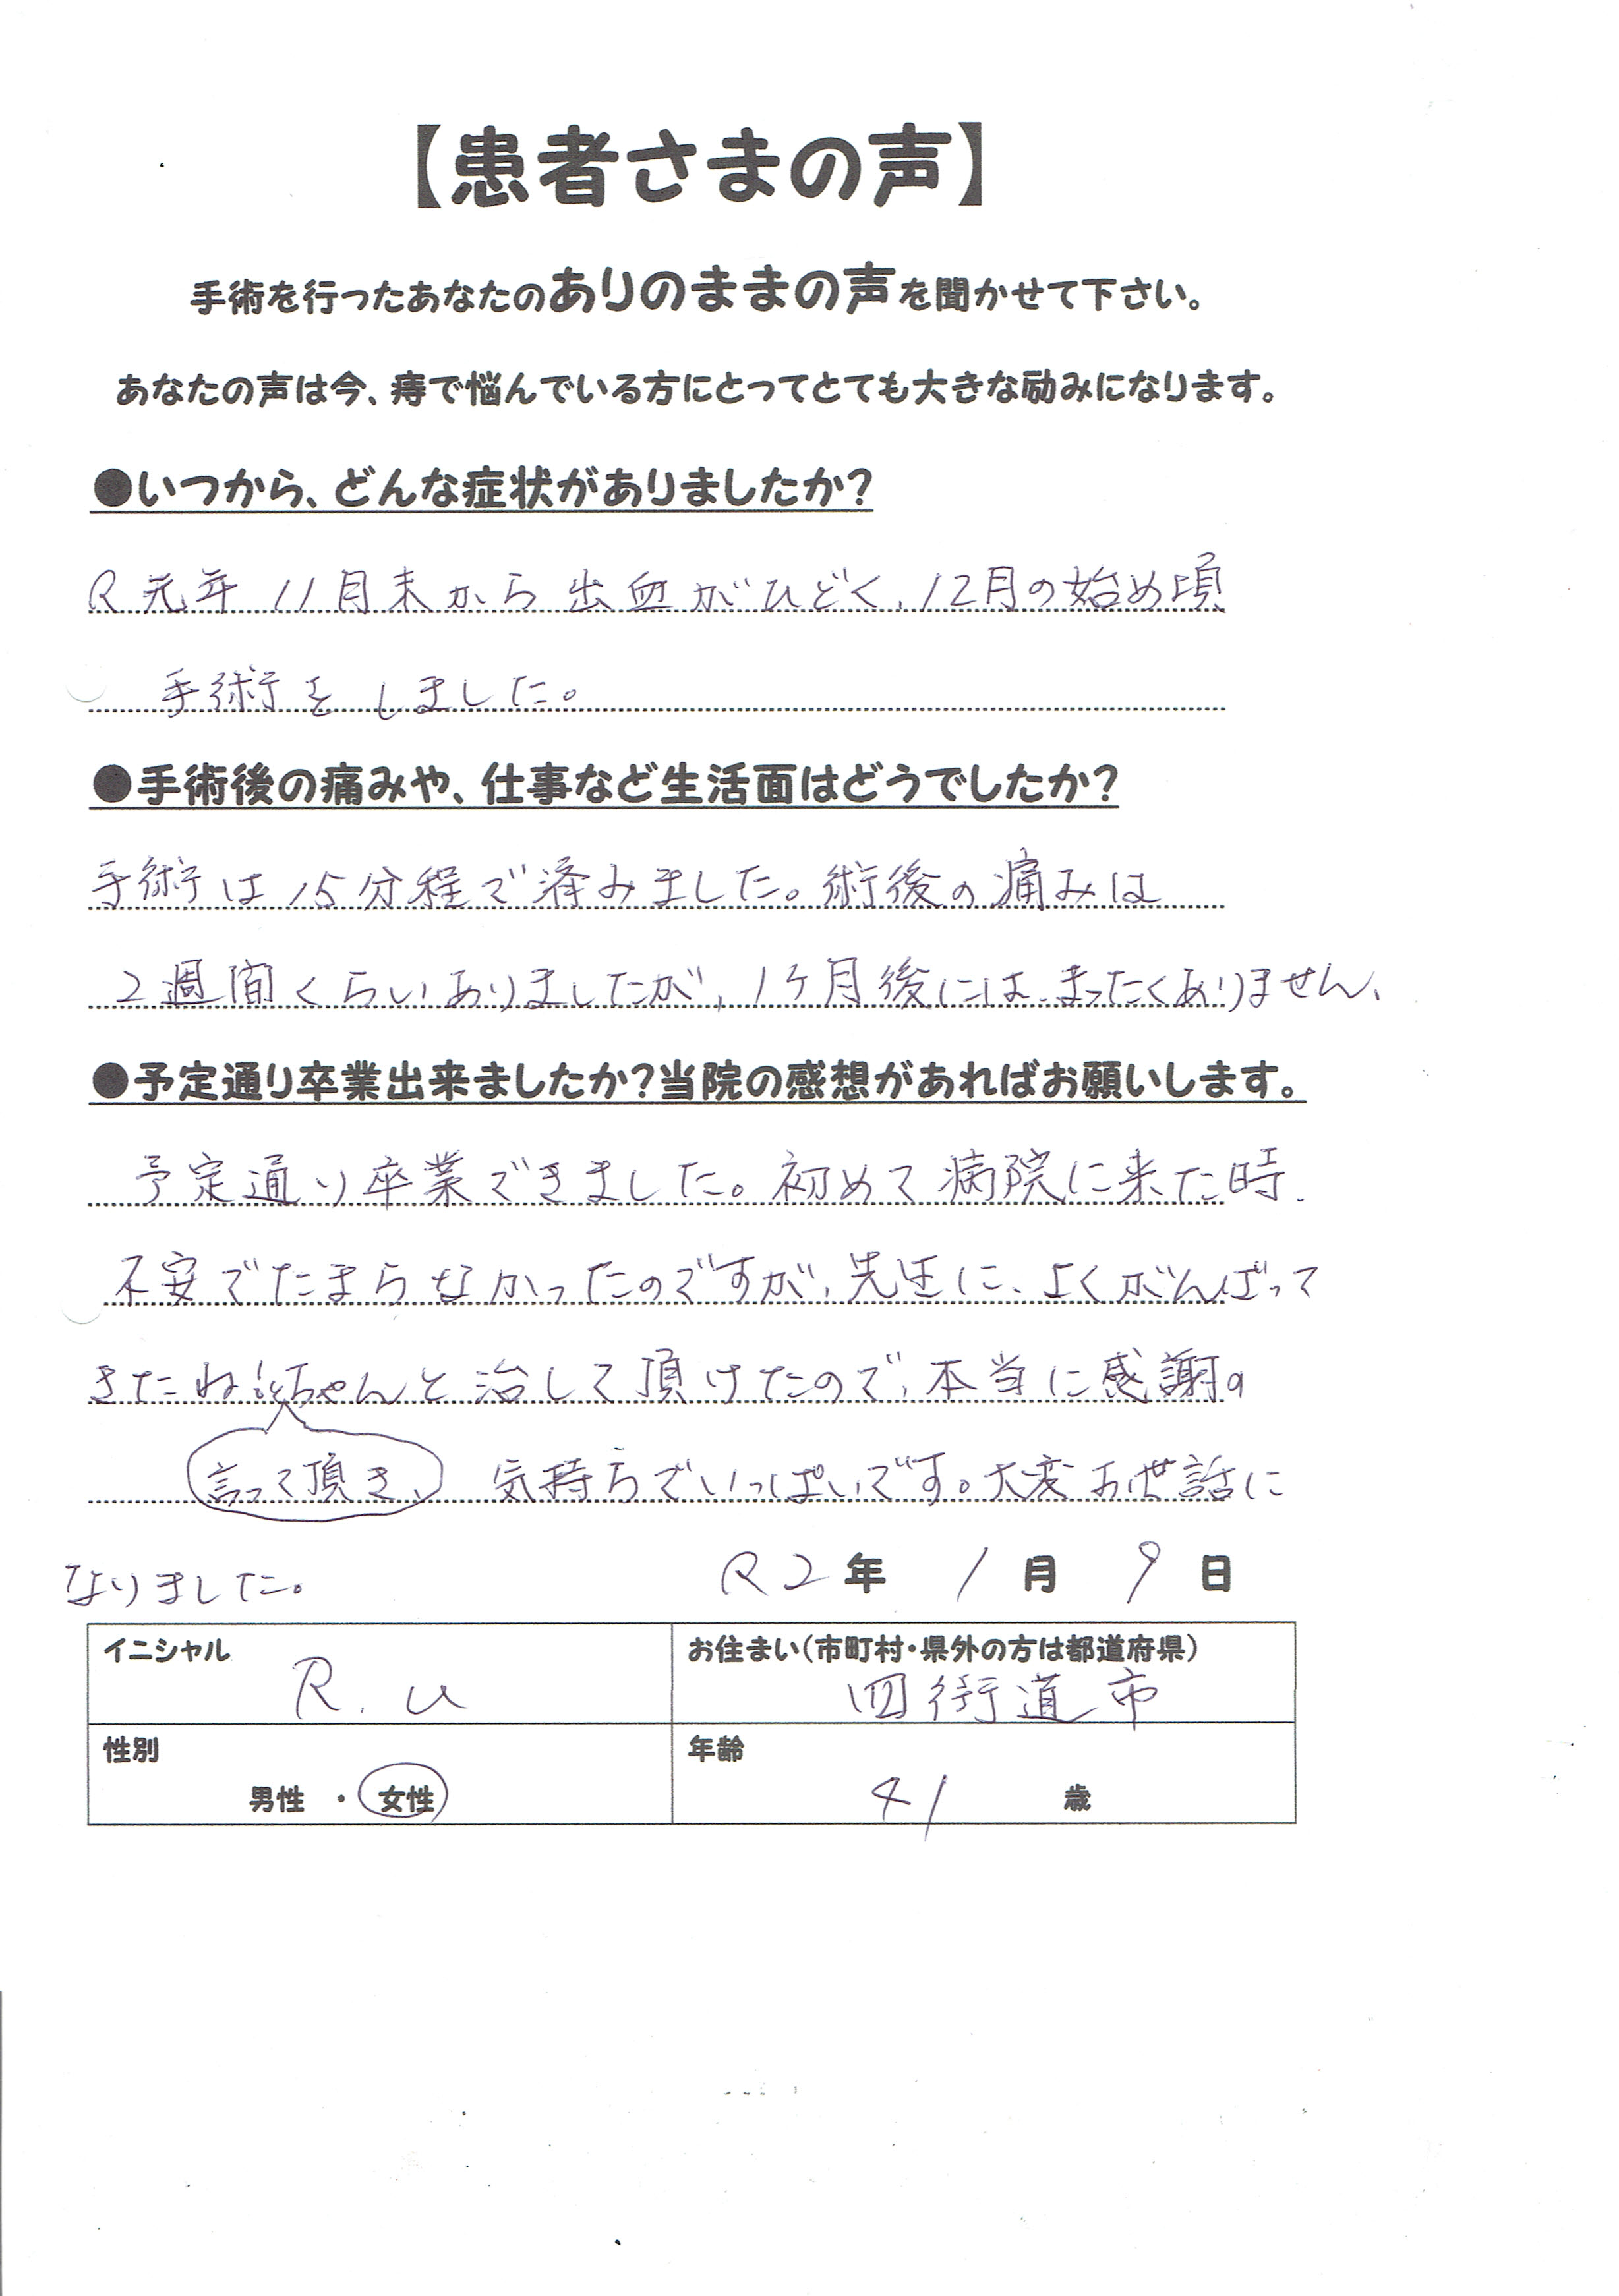 【患者さまの声】
手術を行ったあなたのありのままの声を聞かせて下さい。
あなたの声は今、痔で悩んでいる方にとってとても大きな励みになります。
●いつから、どんな症状がありましたか?
R元年11月末から出血がひどく、12月の始め頃
手術をしました。
●手術後の痛みや、仕事など生活面はどうでしたか?
手術は15分程で済みました。術後の痛みは
2週間くらいありましたが、1ヶ月後には、まったくありません、
●予定通り卒業出来ましたか?当院の感想があればお願いします。
予定通り卒業できました。初めて病院に来た時、
不安でたまらなかったのですが、先生に、よくがんばって
きたね!と ちゃんと治して頂けたので、本当に感謝の
言って頂き、 気持ちでいっぱいです。大変お世話に
なりました。 R2年 1月 9日
イニシャル R.U お住まい(市町村・県外の方は都道府県) 四街道市
性別 男性 ・ 女性 年齢 41 歳